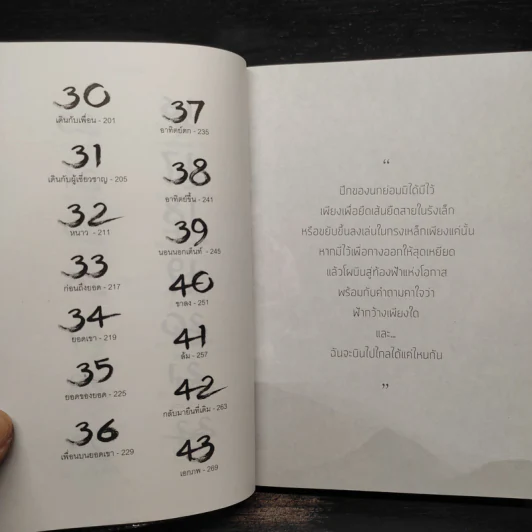 30
เดินกับเพื่อน - 201
31
เดินกับผู้เชี่ยวชาญ - 205
32
หนาว - 211
33
ก่อนถึงยอด - 217
34
ยอดเขา - 219
35
ยอดของยอด - 225
36
เพื่อนบนยอดเขา - 229
37
อาทิตย์ตก - 235
38
อาทิตย์ขึ้น - 241
39
นอนนอกเต็นท์ - 245
40
ขาลง - 251
41
ล้ม - 257
42
กลับมายืนที่เดิม - 263
43
เอกภาพ - 269
“
ปีกของนกย่อมมิได้มีไว้
เพียงเพื่อยืดเส้นยืดสายในรังเล็ก
หรือขยับขึ้นลงเล่นในกรงเหล็กเพียงแค่นั้น
หากมีไว้เพื่อกางออกให้สุดเหยียด
แล้วโผบินสู่ท้องฟ้าแห่งโอกาส
พร้อมกับคำถามคาใจว่า
ฟ้ากว้างเพียงใด
และ..
ฉันจะบินไปไกลได้แค่ไหนกัน
”